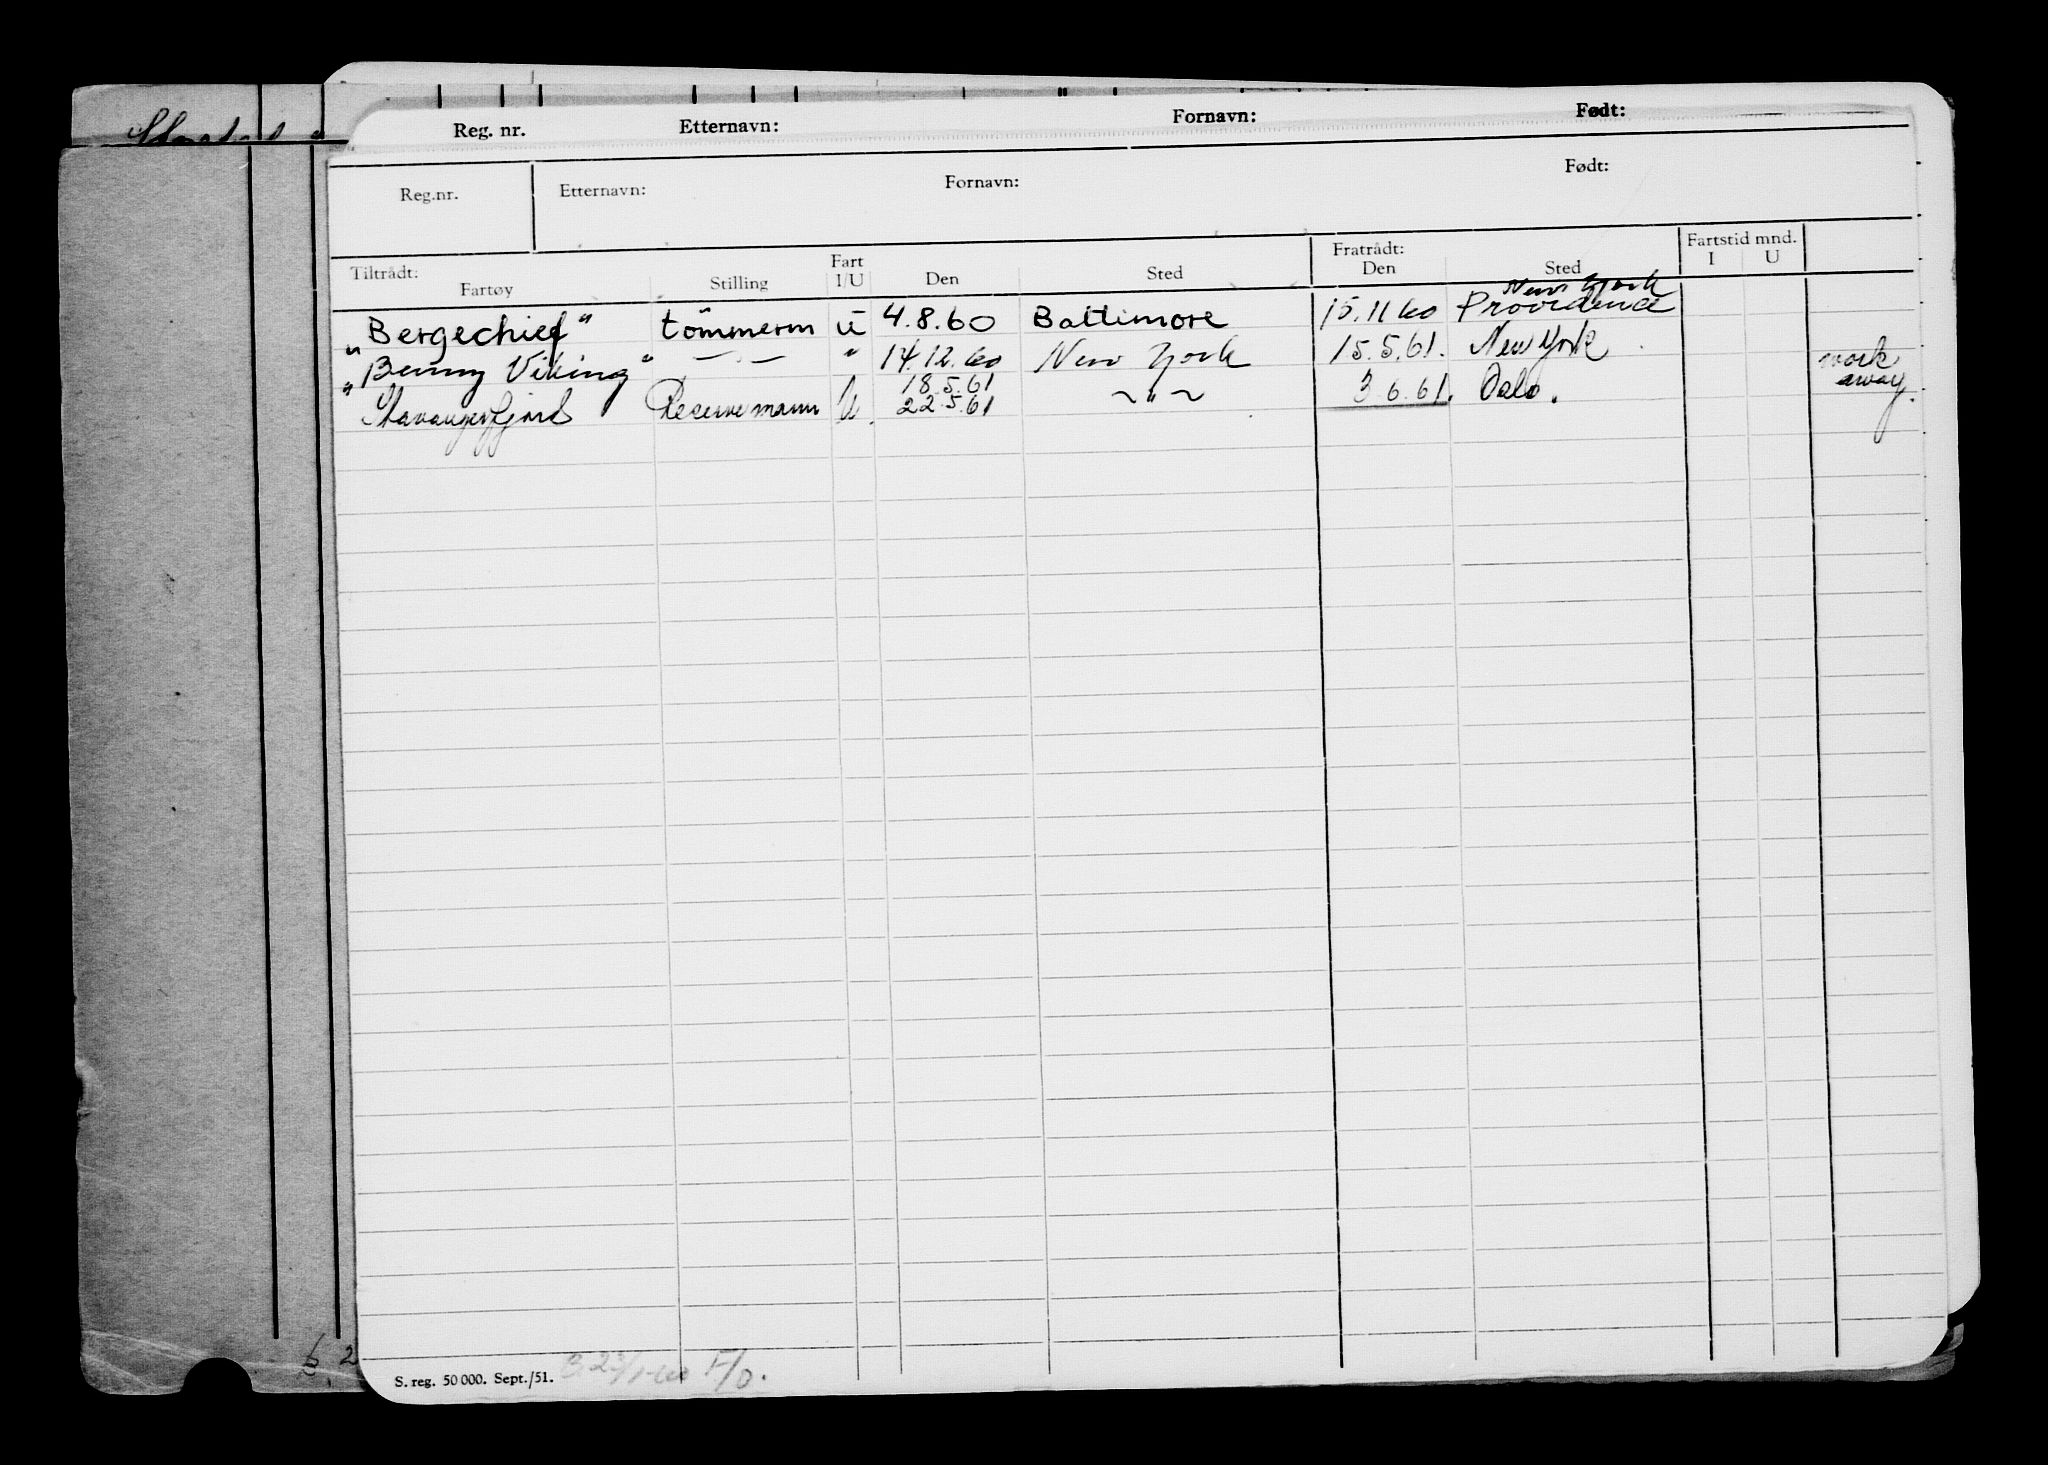 Reg. nr. Etternavn: Fornavn: Født:
Reg.nr. Etternavn: Fornavn: Født:
Tiltrådt: Fartøy Stilling Fart I/U Den Sted Fratrådt: Den Sted Fartstid mnd. I U
New York
„Bergechief" tömmerm U 4.8.60 Baltimore 15.11.60 Providence
„Benny Viking" —"— " 14.12.60 New York 15.5.61. New York
18.5.61
Stavangerfjord Reservemann U. 22.5.61 ~"~ 3.6.61. Oslo. work away.
S. reg. 50 000. Sept./51. F/O.